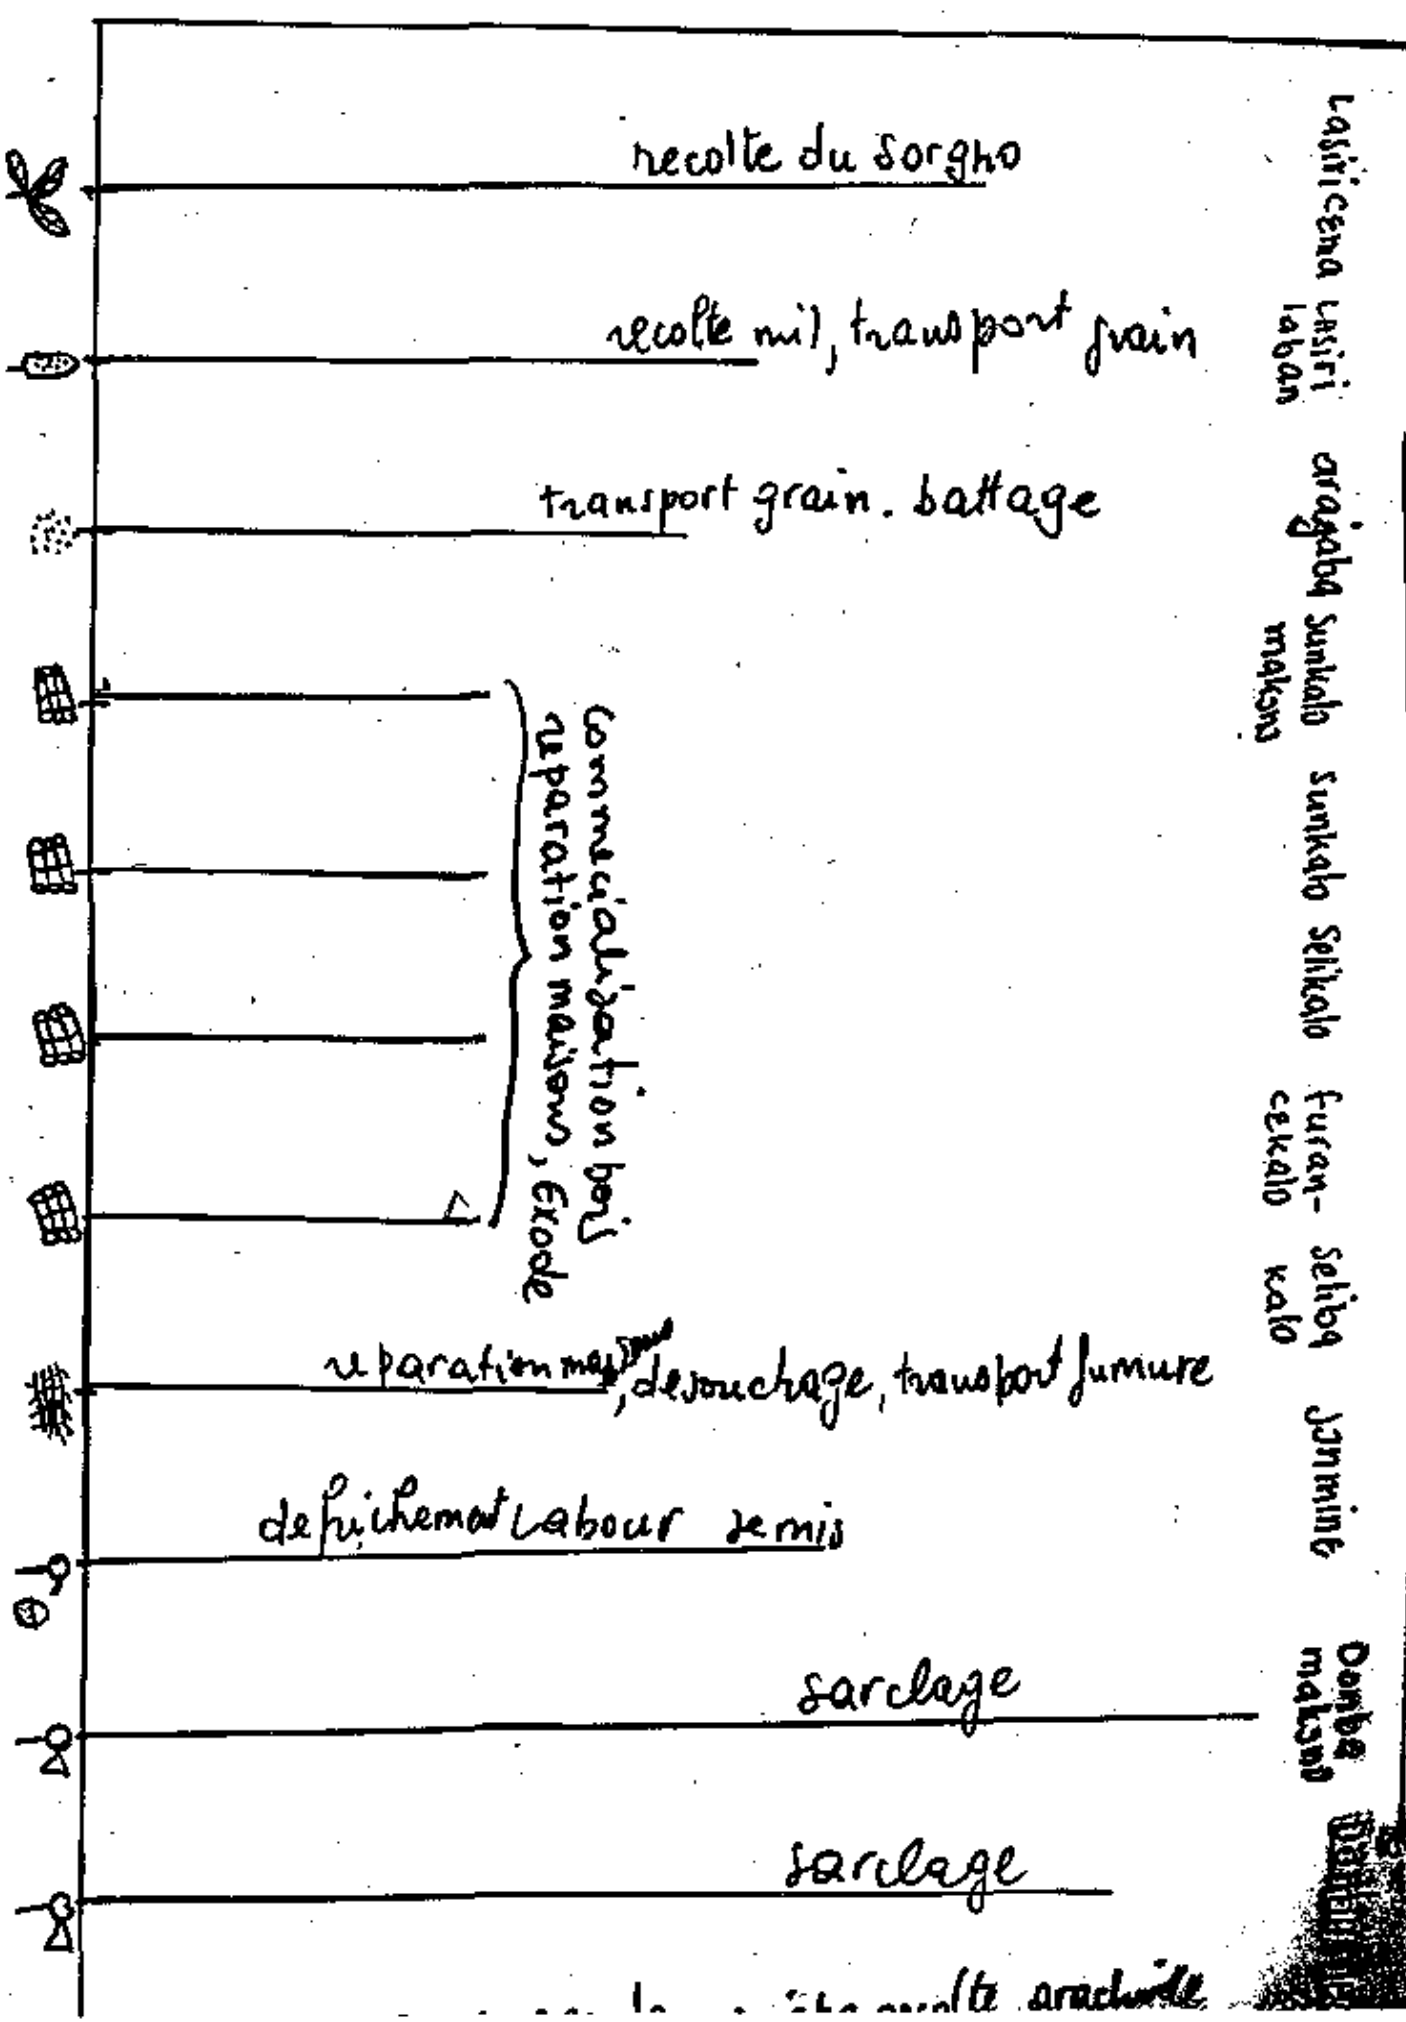 recolte du sorgho
recolte mil, transport grain
transport grain. battage
commercialisation bois
reparation maisons, Exode
reparation maisons, desouchage, transport fumure
defrichemat Labour semis
sarclage
sarclage
recolte arachide
Lasiricɛma
Lasiri
laban
aragaba
Sunkalo
makɔnɔ
Sunkalo
Selikalo
furan-
cɛkalo
Seliba
kalo
Jɔminɛ
Domba
makɔnɔ